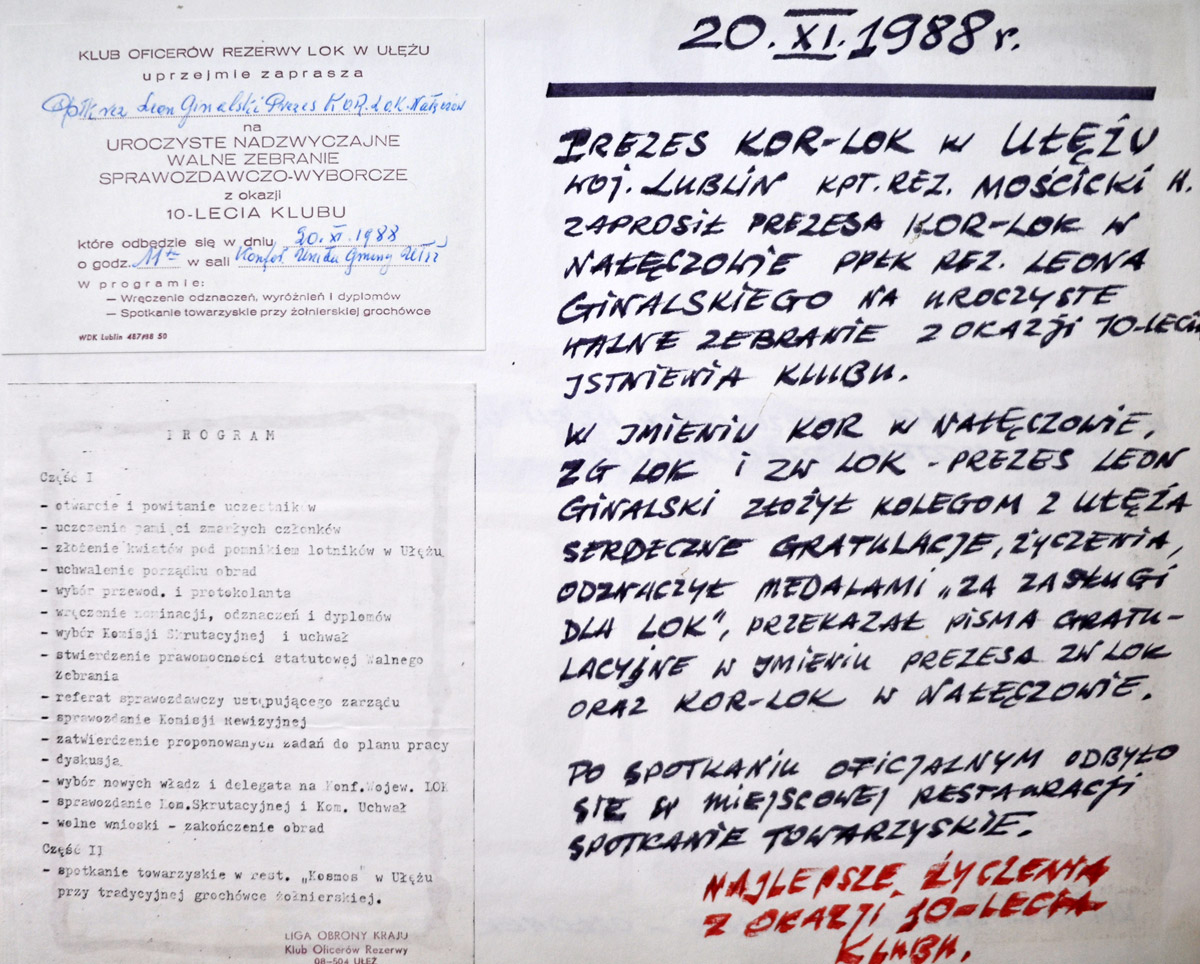 KLUB OFICERÓW REZERWY LOK W UŁĘŻU
uprzejmie zaprasza
Ppłk rez Leon Ginalski Prezes KOR. LOK. Nałęczów
na
UROCZYSTE NADZWYCZAJNE
WALNE ZEBRANIE
SPRAWOZDAWCZO-WYBORCZE
z okazji
10-LECIA KLUBU
które odbędzie się w dniu 20. XI. 1988
o godz. 11 w sali Konfer. Urzędu Gminy Ułęż
W programie:
— Wręczenie odznaczeń, wyróżnień i dyplomów
— Spotkanie towarzyskie przy żołnierskiej grochówce
WDK Lublin 487/88 50
PROGRAM
Część I
- otwarcie i powitanie uczestników
- uczczenie pamięci zmarłych członków
- złożenie kwiatów pod pomnikiem lotników w Ułężu
- uchwalenie porządku obrad
- wybór przewod. i protokolanta
- wręczenie nominacji, odznaczeń i dyplomów
- wybór Komisji Skrutacyjnej i uchwał
- stwierdzenie prawomocności statutowej Walnego
Zebrania
- referat sprawozdawczy ustępującego zarządu
- sprawozdanie Komisji Rewizyjnej
- zatwierdzenie proponowanych zadań do planu pracy
- dyskusja
- wybór nowych władz i delegata na Konf.Wojew. LOK
- sprawozdanie Kom.Skrutacyjnej i Kom. Uchwał
- wolne wnioski - zakończenie obrad
Część II
- spotkanie towarzyskie w rest. „Kosmos" w Ułężu
przy tradycyjnej grochówce żołnierskiej.
LIGA OBRONY KRAJU
Klub Oficerów Rezerwy
08-504 UŁĘŻ
20. XI. 1988 r.
PREZES KOR-LOK W UŁĘŻU
WOJ. LUBLIN KPT. REZ. MOŚCICKI H.
ZAPROSIŁ PREZESA KOR-LOK W
NAŁĘCZOWIE PPŁK REZ. LEONA
GINALSKIEGO NA UROCZYSTE
WALNE ZEBRANIE Z OKAZJI 10-LECIA
ISTNIENIA KLUBU.
W IMIENIU KOR W NAŁĘCZOWIE,
ZG LOK I ZW LOK - PREZES LEON
GINALSKI ZŁOŻYŁ KOLEGOM Z UŁĘŻA
SERDECZNE GRATULACJE, ŻYCZENIA,
ODZNACZYŁ MEDALAMI „ZA ZASŁUGI
DLA LOK", PRZEKAZAŁ PISMA GRATU-
LACYJNE W IMIENIU PREZESA ZW LOK
ORAZ KOR-LOK W NAŁĘCZOWIE.
PO SPOTKANIU OFICJALNYM ODBYŁO
SIĘ W MIEJSCOWEJ RESTAURACJI
SPOTKANIE TOWARZYSKIE.
NAJLEPSZE ŻYCZENIA
Z OKAZJI 10-LECIA
KLUBU.